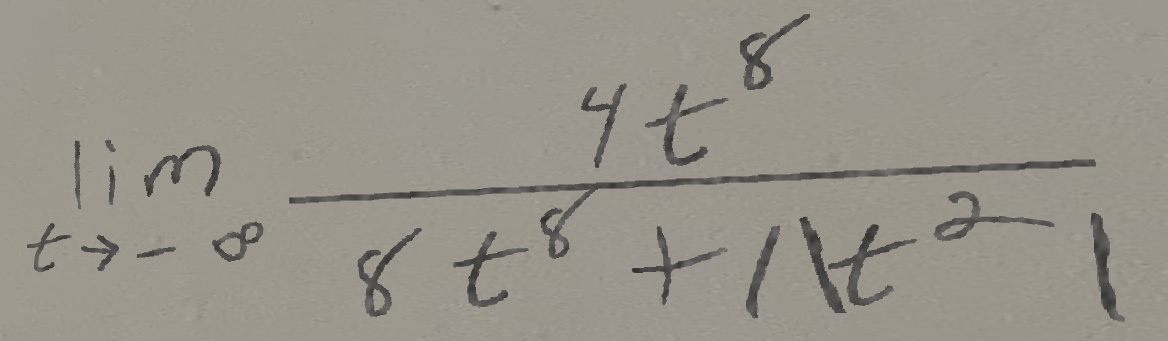 \lim_{t \to -\infty} \frac{4t^8}{8t^8 + 11t^2 - 1}